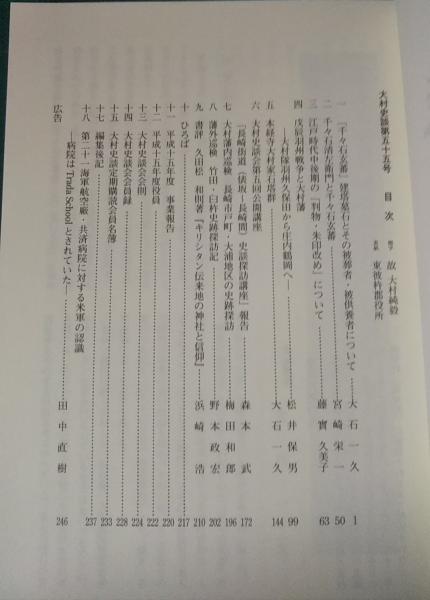 大村史談第五十五号 目次
題字 故 大村純毅
表紙 東彼杵郡役所
一 「千々石玄蕃」建塔墓石とその被葬者・被供養者について 大石一久 1
二 千々石清左衛門と千々石玄蕃 宮崎栄一 50
三 江戸時代中後期の「判物・朱印改め」について 藤實久美子 63
四 戊辰羽州戦争と大村藩
―大村隊羽州久保田から庄内鶴岡へ― 松井保男 99
五 本経寺大村家石塔群 大石一久 144
六 大村史談会第五回公開講座
「長崎街道(俵坂~長崎間)史談探訪講座」報告 森本武 172
七 大村藩内巡検 長崎市戸町・大浦地区の史跡探訪 梅田和郎 196
八 藩外巡検 竹田・臼杵史跡探訪記 野本政宏 202
九 書評 久田松和則著『キリシタン伝来地の神社と信仰』 浜崎浩 210
十 ひろば 217
十一 平成十五年度 事業報告 220
十二 平成十五年度役員 222
十三 大村史談会会則 224
十四 大村史談会会員録 228
十五 大村史談定期購読会員名簿 233
十七 編集後記
十八 第二十一海軍航空廠・共済病院に対する米軍の認識 237
―病院は Trada School とされていた― 田中直樹 246
広告